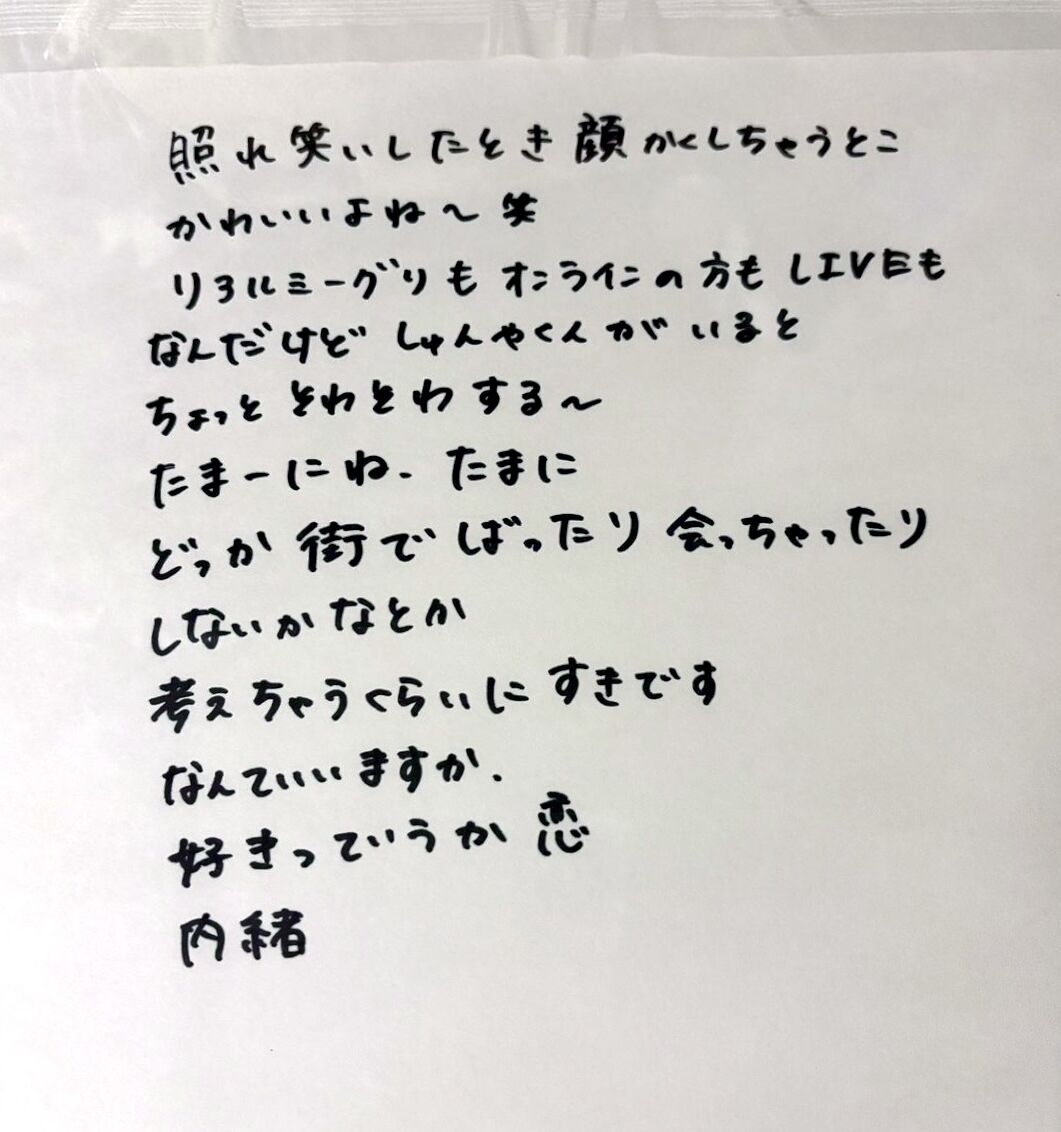 照れ笑いしたとき顔かくしちゃうとこ
かわいいよね〜笑
リアルミーグリも オンラインの方も LIVEも
なんだけど しゅんやくんが いると
ちょっと そわそわする〜
たまーにね、たまに
どっか 街で ばったり 会っちゃったり
しないかなとか
考えちゃうくらいに すきです
なんていいますか、
好きっていうか 恋
内緒